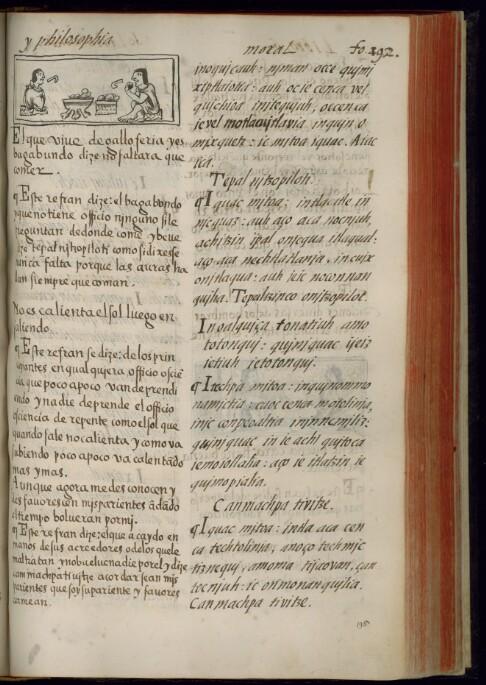 y philosophia
moral
fo. 192.
El que viue de gallo feria y es
bagabundo dize no faltara que
comer.
¶ Este refran dize: el bagabundo
y que no tiene officio ninguno si le
preguntan de donde come y beue
dize tepal nitzopiloti como si dixesse
nunca falta porque las auras ha
llan siempre que coman.
No es calienta el sol luego en
saliendo.
¶ Este refran se dize: de los prin
cipiantes en qualquiera officio o scie
cia que poco apoco van deprendi
endo y nadie deprende el officio
o sciencia de repente como el sol que
quando sale no calienta y como va
subiendo poco apoco va calentādo
mas y mas.
Aunque agora me desconocen y
des fauorescen mis parientes ādādo
el tiempo bolueran por mi.
¶ Este refran dize: el que a caydo en
manos de sus acreedores o de los que le
maltratan y no buelue nadie por el y dize
can machpa tiuitze acordar sean mis
parientes que soy su pariente y fauores
cer me an.
inoquicauh: niman occe quimi
xiptlalotia: auh oc ie cenca vel
quichioa in itequiuh, occenca
ie vel motlacuitlauia in quin o
mixquetz: ie mitoa iquac. A iac
Tepal nitzopiloti.
¶ Iquac mitoa: intla itle in
nicquaz: auh aço aca nocniuh,
achitzin ipal onicqua itlaqual:
aço aca nechtlatlania, in cuix
onitlaqua: auh ie ic nocon nan
quilia. Tepaltzinco onitzopilot.
In oalquiça tonatiuh amo
totonqui: quin iquac ie
ictiuh ie totonqui.
¶ Itechpa mitoa: in quin ommo
namictia ca oc cenca motolinia,
inic compeoaltia in innemiliz:
quin iquac in ie achi quitoca
iemotlatlalia: aço ie itlatzin ie
quimopialia.
Canmachpa tivitze.
¶ Iquac mitoa: intla aca cen
ca techtolinia, anoço techmic
tiznequi, amo ma tijaovan, çan
tecniuh: ic onmonanquilia.
Canmachpa tivitze.